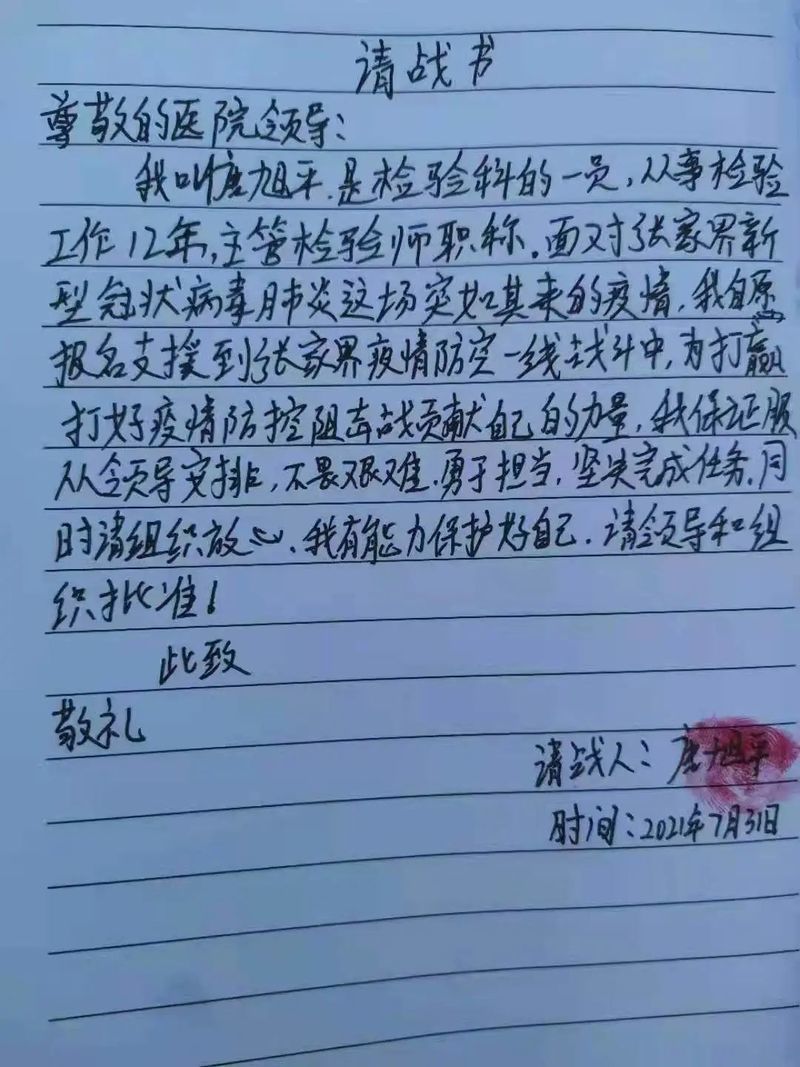 请战书
尊敬的医院领导：
我叫唐旭平，是检验科的一员，从事检验
工作12年，主管检验师职称。面对张家界新
型冠状病毒肺炎这场突如其来的疫情，我自愿
报名支援到张家界疫情防控一线战斗中，为打赢
打好疫情防控阻击战贡献自己的力量，我保证服
从领导安排，不畏艰难，勇于担当，坚决完成任务，同
时请组织放心，我有能力保护好自己，请领导和组
织批准！
此致
敬礼
请战人：唐旭平
时间：2021年7月31日